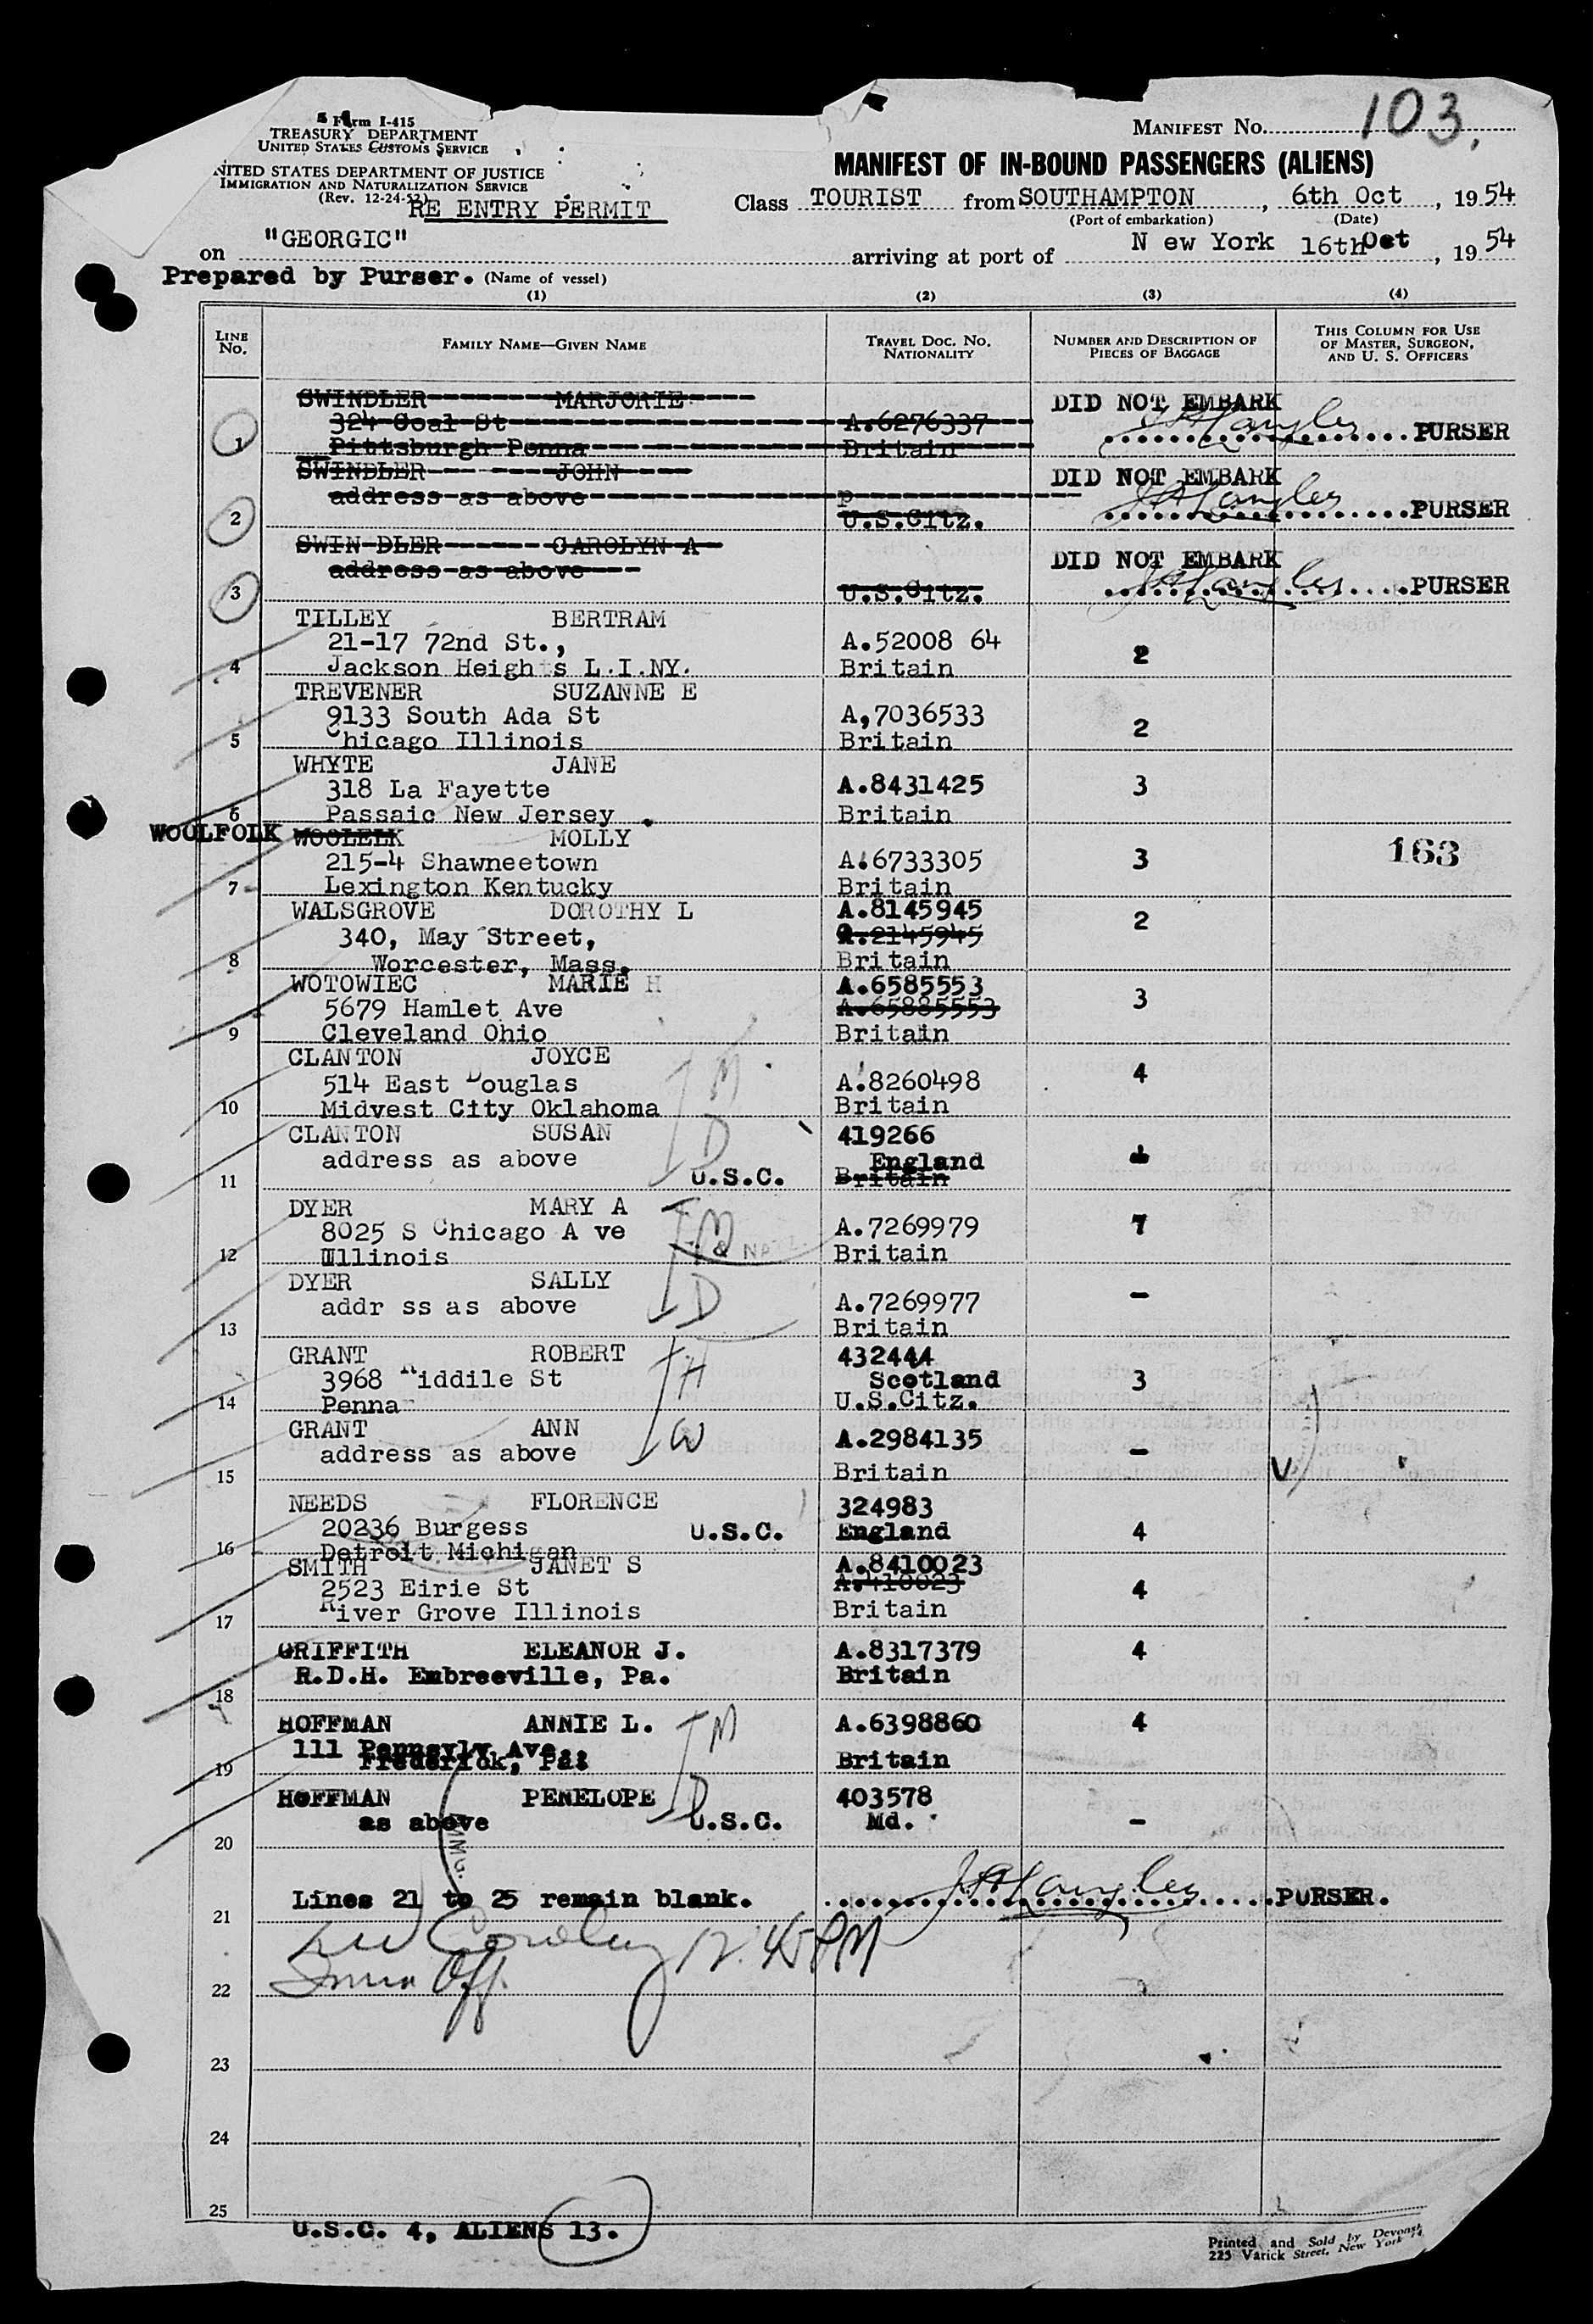 Form I-415
TREASURY DEPARTMENT
UNITED STATES CUSTOMS SERVICE
NITED STATES DEPARTMENT OF JUSTICE
IMMIGRATION AND NATURALIZATION SERVICE
(Rev. 12-24-52)
RE ENTRY PERMIT
MANIFEST NO. 103.
MANIFEST OF IN-BOUND PASSENGERS (ALIENS)
Class TOURIST from SOUTHAMPTON, 6th Oct, 1954
(Port of embarkation) (Date)
on "GEORGIC" arriving at port of N ew York 16th Oct, 1954
Prepared by Purser. (Name of vessel)
(1) (2) (3) (4)
LINE NO. FAMILY NAME—GIVEN NAME TRAVEL DOC. NO. NATIONALITY NUMBER AND DESCRIPTION OF PIECES OF BAGGAGE THIS COLUMN FOR USE OF MASTER, SURGEON, AND U. S. OFFICERS
SWINDLER MARJORIE DID NOT EMBARK
324 Coal St A.6276337 PURSER
1 Pittsburgh Penna Britain
SWINDLER JOHN DID NOT EMBARK
address as above p
2 U.S.Citz. PURSER
SWIN DLER CAROLYN A DID NOT EMBARK
address as above
3 U.S.Citz. PURSER
TILLEY BERTRAM
21-17 72nd St., A.52008 64
4 Jackson Heights L.I.NY. Britain 2
TREVENER SUZANNE E
9133 South Ada St A,7036533 2
5 Chicago Illinois Britain
WHYTE JANE
318 La Fayette A.8431425 3
6 Passaic New Jersey . Britain
WOOLFOLK WOOLELK MOLLY
215-4 Shawneetown A.6733305 3 163
7 Lexington Kentucky Britain
WALSGROVE DOROTHY L A.8145945 2
340, May Street, A.2145945
8 Worcester, Mass. Britain
WOTOWIEC MARIE H A.6585553
5679 Hamlet Ave A.65885553 3
9 Cleveland Ohio Britain
CLANTON JOYCE M
514 East Douglas A.8260498 4
10 Midvest City Oklahoma Britain
CLANTON SUSAN D 419266
address as above England
11 U.S.C. Britain
DYER MARY A M
8025 S Chicago A ve A.7269979 7
12 Illinois & NATZ. Britain
DYER SALLY D
addr ss as above A.7269977 -
13 Britain
GRANT ROBERT H 432444
3968 Riddile St Scotland 3
14 Penna U.S.Citz.
GRANT ANN W A.2984135
address as above -
15 Britain V
NEEDS FLORENCE 324983
20236 Burgess U.S.C. England 4
16 Detroit Michigan
SMITH JANET S A.8410023
2523 Eirie St A.410023 4
17 River Grove Illinois Britain
GRIFFITH ELEANOR J. A.8317379 4
R.D.H. Embreeville, Pa. Britain
18
HOFFMAN ANNIE L. M A.6398860 4
111 Pennsylv Ave.
19 Frederick, Pa. Britain
HOFFMAN PENELOPE D 403578
as above U.S.C. Md. -
20
Lines 21 to 25 remain blank. PURSER.
21
12.45PM
22 Off.
23
24
25
U.S.C. 4, ALIENS 13.
Printed and Sold by
225 Varick Street, New York 14